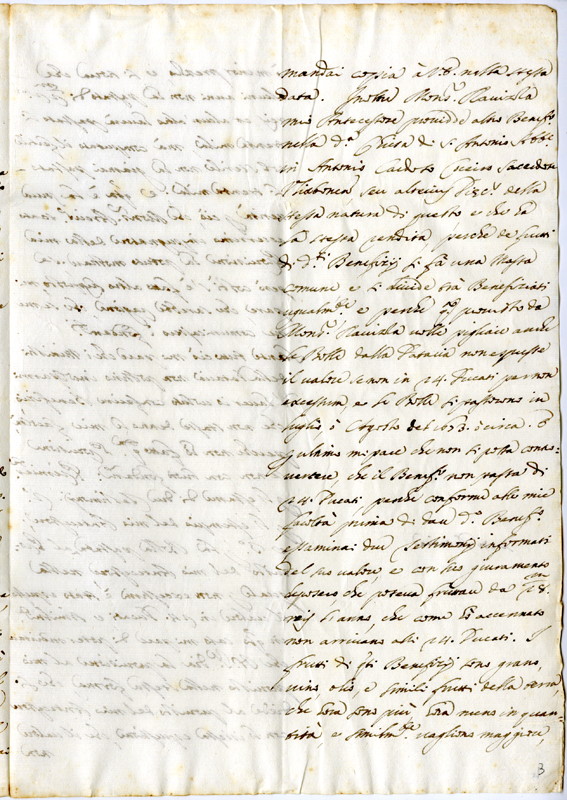 mandai copia à V.S. nella stessa
data. Inoltre Mons.r Raviola
mio Antecessore providde altro Benef.o
nella d.a Chiesa di S. Antonio Abb.e
in Antonio Cardoto Sacerdote
seu alterius della
stessa natura di questo e che hà
la stessa rendita perche de frutti
di d.ti Benefizij si fà una Massa
comune e si divide trà Beneficiati
ugualm.te e perche q.o provisto da
Mons.r Raviola volle pigliare anche
le Bolle dalla Dataria non espresse
il valore se non in 24. Ducati per non
excessum, e le Bolle si spedirono in
luglio ò Agosto del 1673. circa. E
p ultimo mi pare che non si possa contro-
vertere che il Benef.o non passa di
24. Ducati perche conforme alle mie
facoltà prima di dare d.o Benef.o
essaminai due Testimonij informati
del suo valore e con suo giuramento
deposero, che poteva fruttare da 18.
l'anno, che come hò accennato
non arrivano alli 24. Ducati. I
frutti di q.ti Benefizij sono grano,
vino olio, e simili frutti della terra
che hora sono più hora meno in quan-
tità, e similm.te vagliono maggiore,
3